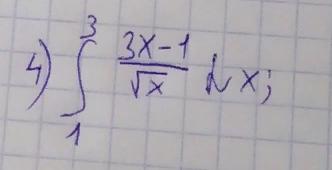 4) ∫₁³ (3x-1)/√x dx;